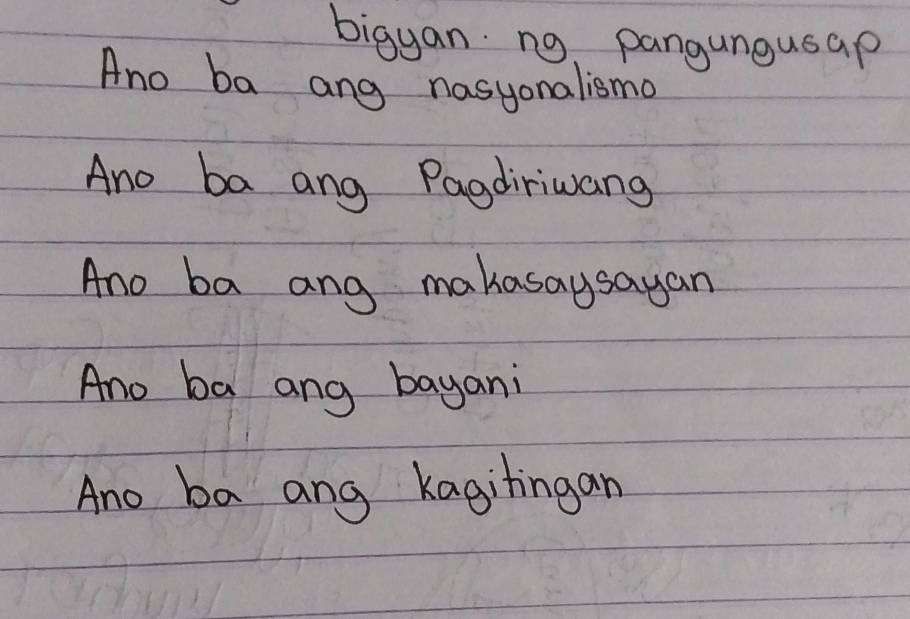 bigyan. ng pangungusap
Ano ba ang nasyonalismo
Ano ba ang Pagdiriwang
Ano ba ang makasaysayan
Ano ba ang bayani
Ano ba ang kagitingan